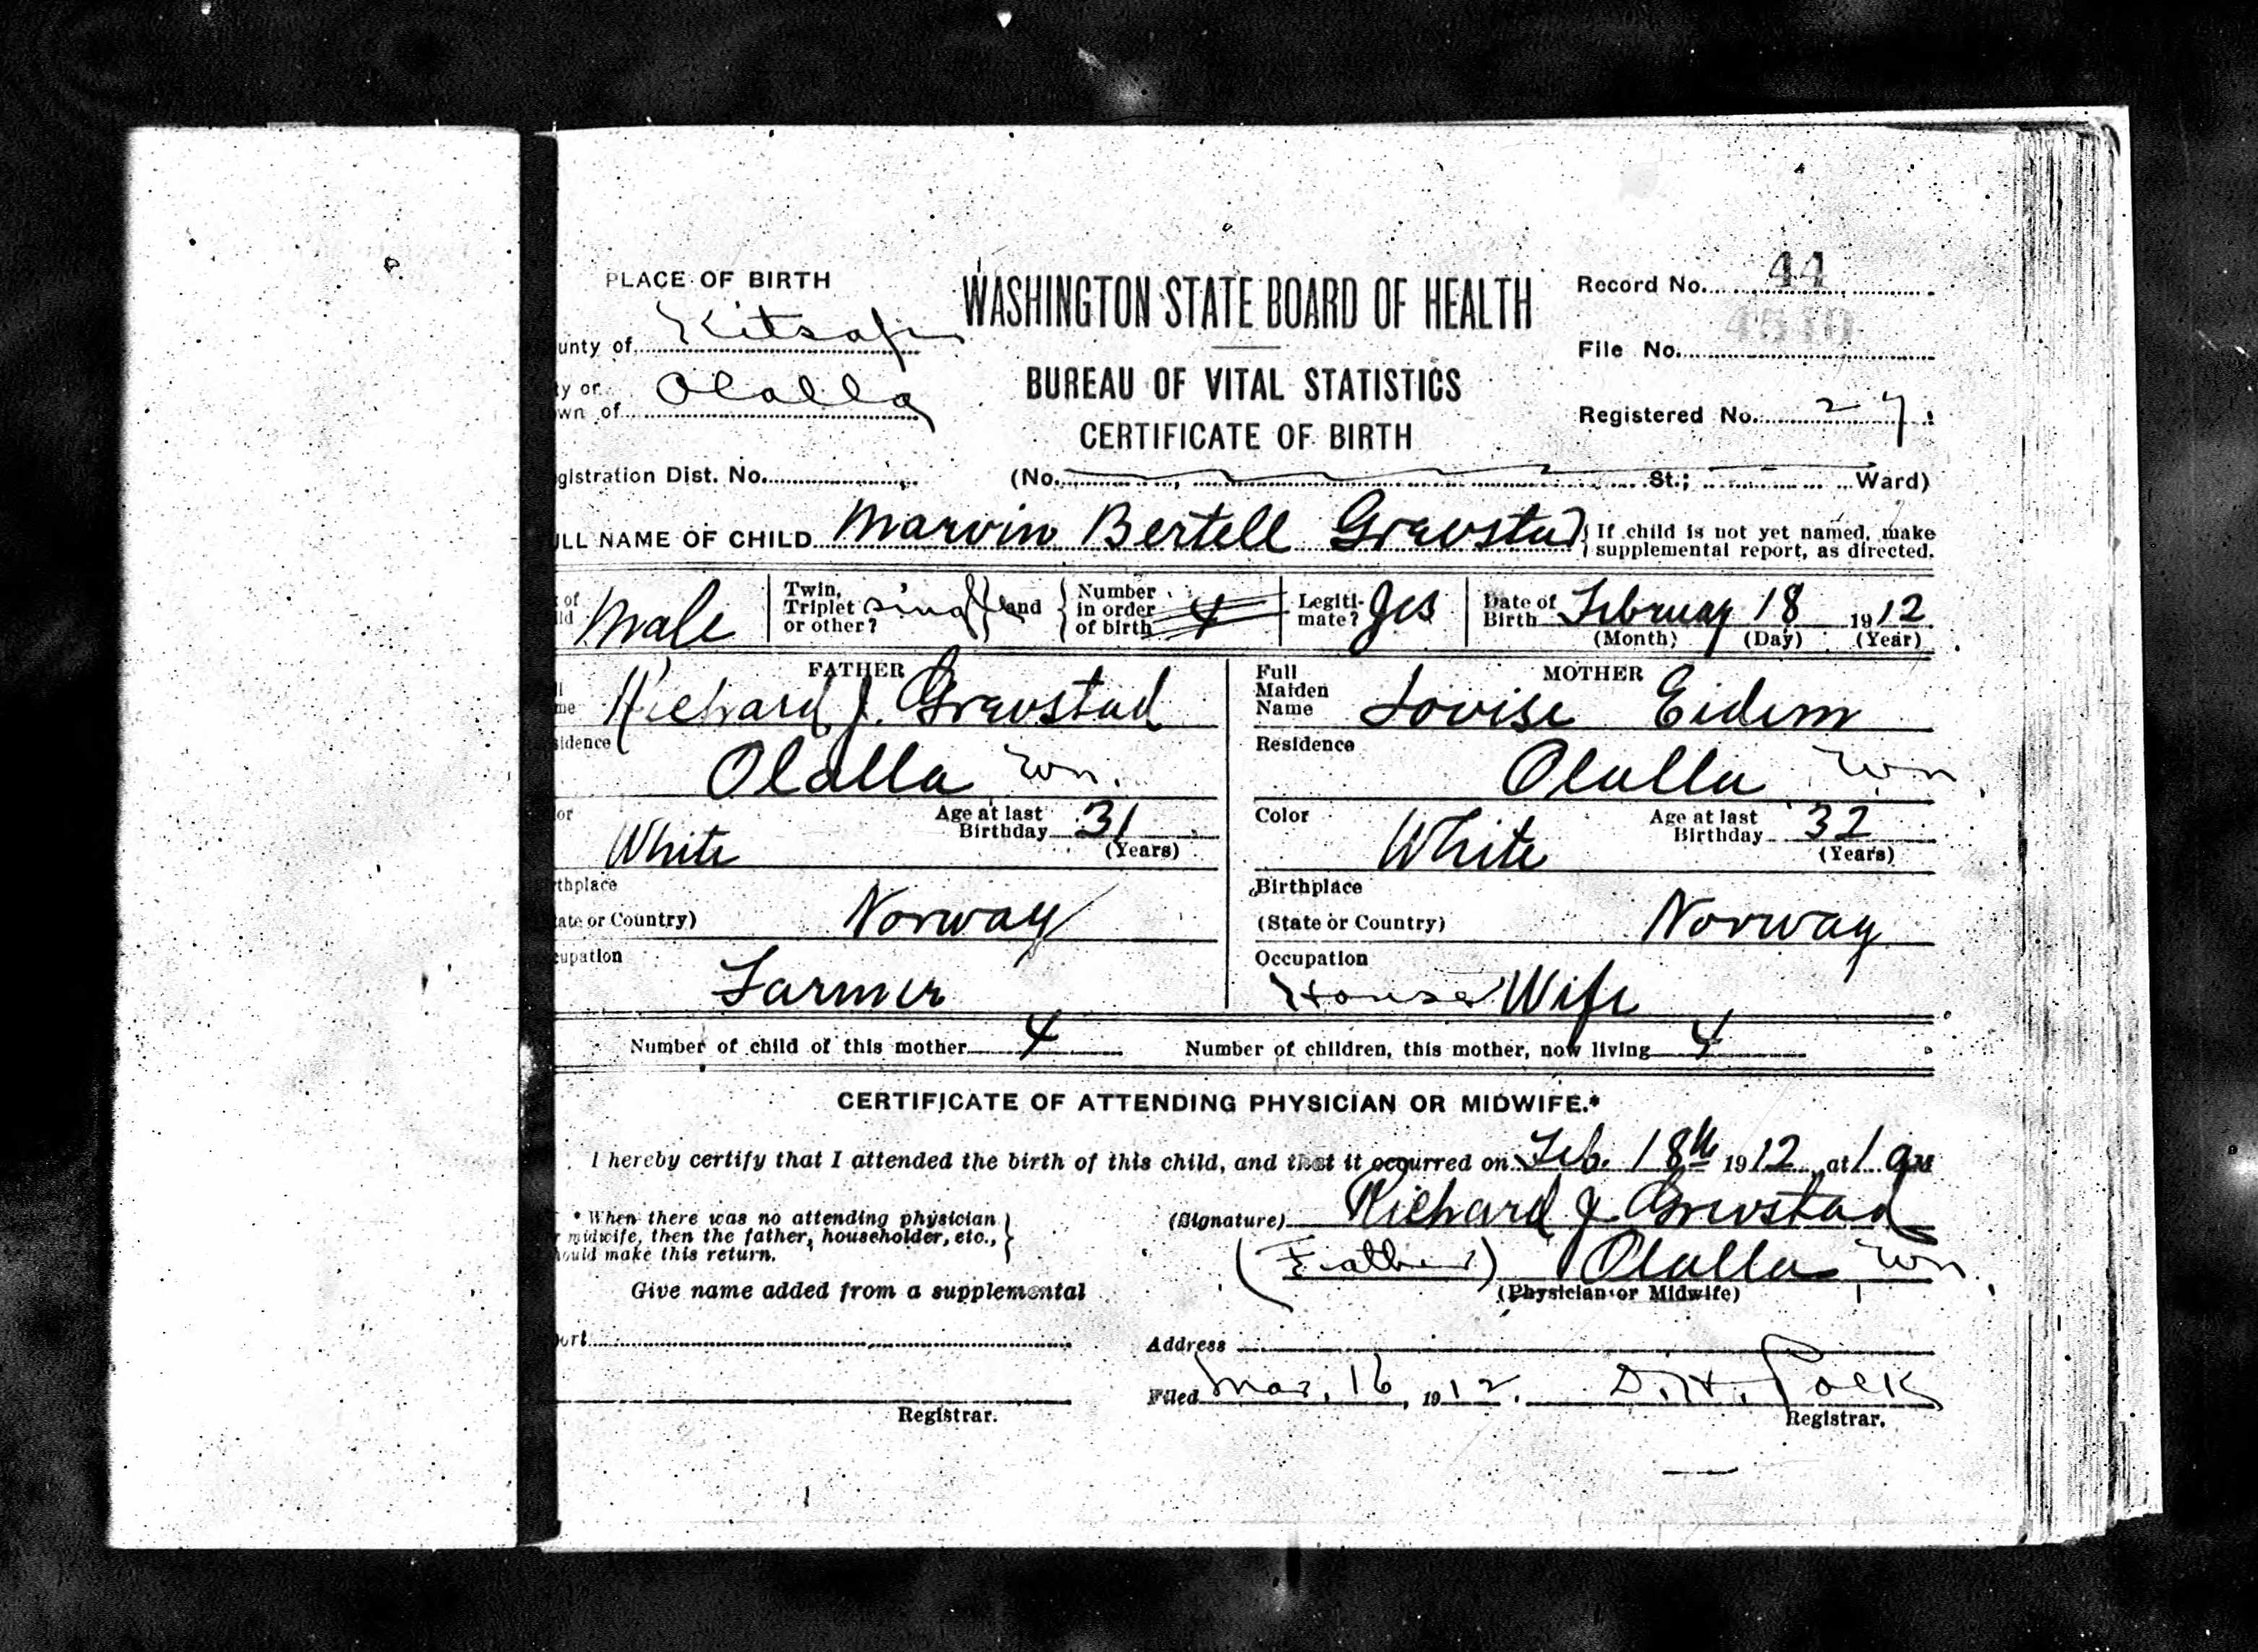 PLACE OF BIRTH
WASHINGTON STATE BOARD OF HEALTH
Record No. 44
unty of Kitsap
File No. 4510
BUREAU OF VITAL STATISTICS
ty or
wn of Olalla
Registered No. 27
CERTIFICATE OF BIRTH
gistration Dist. No.
(No. , St.; Ward)
ULL NAME OF CHILD Marvin Bertell Grevstad { If child is not yet named, make
supplemental report, as directed.
of
ld Male
Twin,
Triplet
or other? Single } and { Number
in order
of birth 4
Legiti-
mate? Yes
Date of
Birth February 18 1912
(Month) (Day) (Year)
FATHER
ll
me Richard J. Grevstad
sidence
Olalla Wn.
or
White
Age at last
Birthday 31
(Years)
thplace
ate or Country) Norway
cupation
Farmer
MOTHER
Full
Maiden
Name Lovise Eidem
Residence
Olalla Wn
Color
White
Age at last
Birthday 32
(Years)
Birthplace
(State or Country) Norway
Occupation
House Wife
Number of child of this mother 4 Number of children, this mother, now living 4
CERTIFICATE OF ATTENDING PHYSICIAN OR MIDWIFE.*
I hereby certify that I attended the birth of this child, and that it occurred on Feb. 18th 1912, at 1 a M
* When there was no attending physician
r midwife, then the father, householder, etc.,
hould make this return. }
(Signature) Richard J Grevstad
(Father) Olalla Wn.
(Physician or Midwife)
Give name added from a supplemental
port
Address
Filed Mar. 16, 1912. D. H. Pack
Registrar.
Registrar.